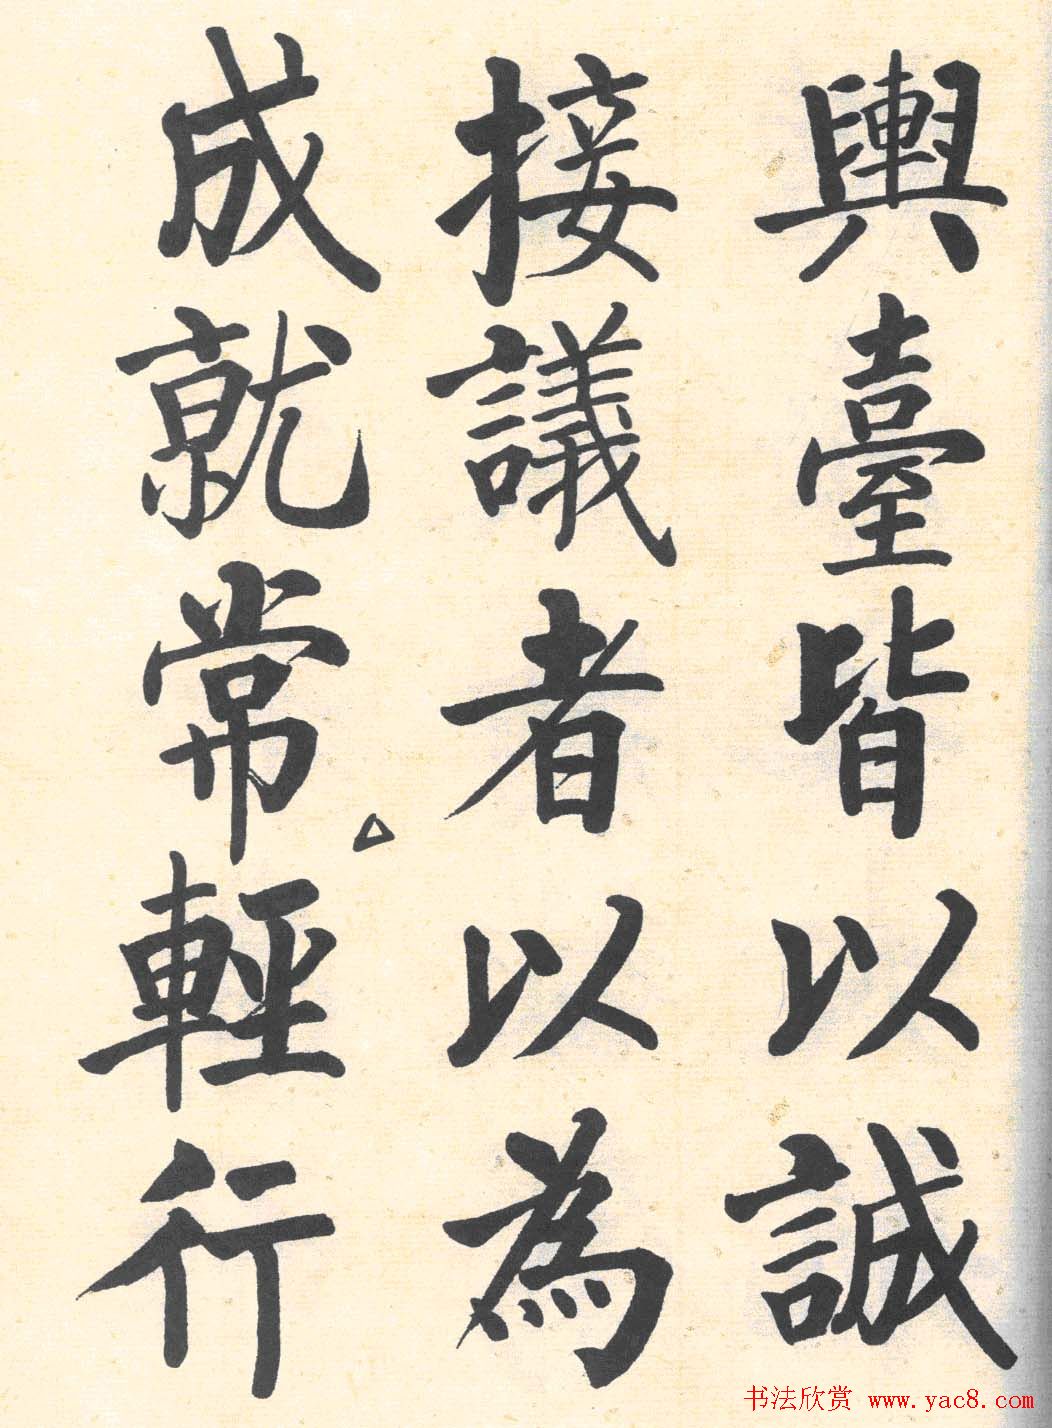 輿臺皆以誠
接議者以為
成就常輕行
书法欣赏 www.yac8.com